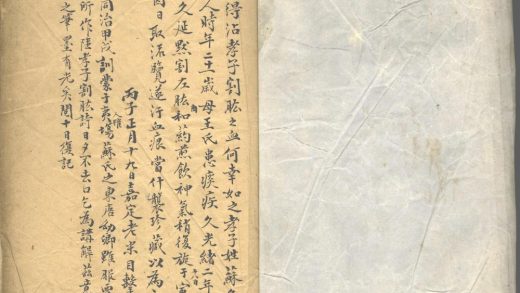 得沾孝子割肱之血何幸如之孝子姓蘇
人時年二十一歲母王氏患痰疾久光緒二年
久延黙割左肱和药煎飲神氣稍復旋于
因日取活覽遂汙血痕當什襲珍藏以為
丙子正月十九日嘉定老米目擊
同治甲戌訓蒙于 蘇氏之東唐幼卿雖服
所作陸孝子割肱詩日夕不去口乞為講解茲
之筆墨有光矣閏十日復記